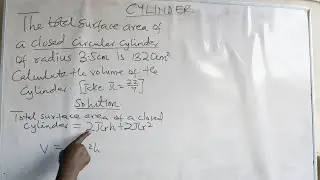 CYLINDER
The total surface area of
a closed circular cylinder
of radius 3.5cm is 132cm²
Calculate the volume of the
cylinder. [take π = 22/7]
Solution
Total surface area of a closed
cylinder = 2πrh + 2πr²
V = r²h